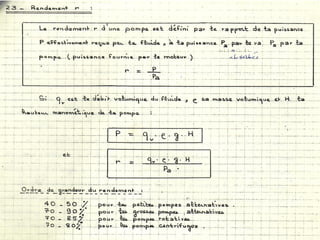 2.3 _ Rendement r :
Le rendement r d'une pompe est défini par le rapport de la puissance
P effectivement reçue par le fluide, à la puissance Pa par
pompe (puissance fournie par le moteur).
r = P
Pa
Si qv est le débit volumique du fluide, ρ sa masse volumique et H la
hauteur manométrique de la pompe :
P = qv . ρ . g . H
et
r = qv . ρ . g . H
Pa
Ordre de grandeur du rendement :
40 - 50 % pour les petites pompes alternatives.
70 - 90 % pour les grosses pompes alternatives
70 - 85 % pour les pompes rotatives.
70 - 80 % pour les pompes centrifuges.